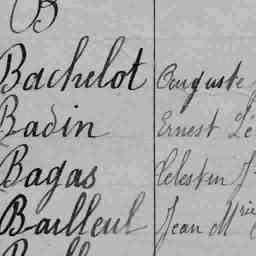 B
Bachelot Auguste
Badin Ernest Lé
Bagas Celestin J
Bailleul Jean Mrie